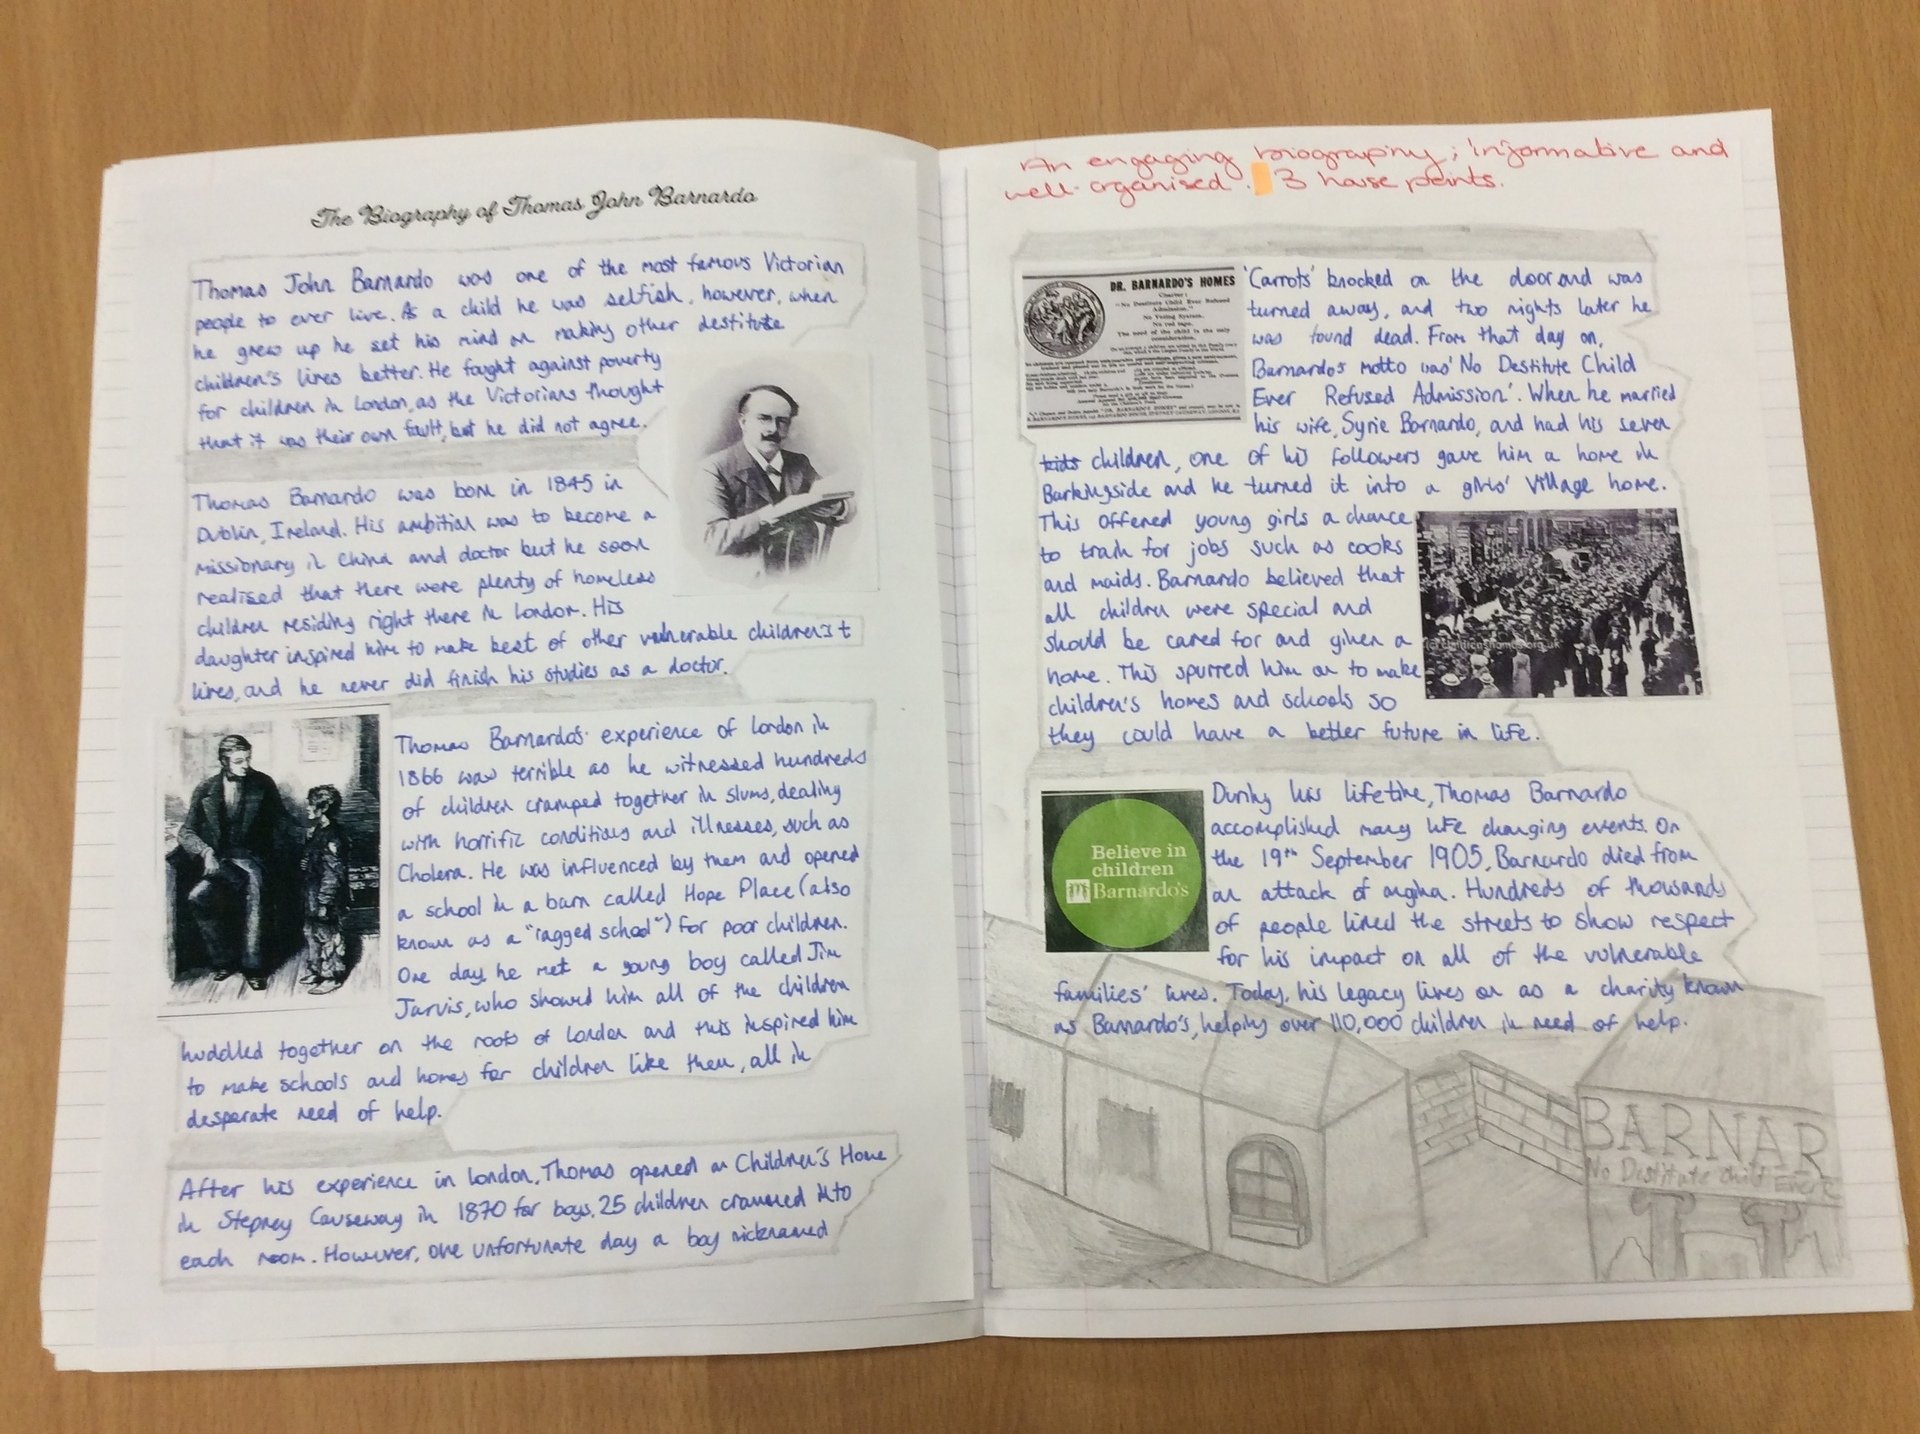 The Biography of Thomas John Barnardo
Thomas John Barnardo was one of the most famous Victorian
people to ever live. As a child he was selfish, however, when
he grew up he set his mind on making other destitute
children's lives better. He fought against poverty
for children in London, as the Victorians thought
that it was their own fault, but he did not agree.
Thomas Barnardo was born in 1845 in
Dublin, Ireland. His ambition was to become a
missionary in China and doctor but he soon
realised that there were plenty of homeless
children residing right there in London. His
daughter inspired him to make best of other vulnerable children's
lives, and he never did finish his studies as a doctor.
Thomas Barnardo's experience of London in
1866 was terrible as he witnessed hundreds
of children cramped together in slums, dealing
with horrific conditions and illnesses, such as
Cholera. He was influenced by them and opened
a school in a barn called Hope Place (also
known as a "ragged school") for poor children.
One day, he met a young boy called Jim
Jarvis, who showed him all of the children
huddled together on the roofs of London and this inspired him
to make schools and homes for children like them, all in
desperate need of help.
After his experience in London, Thomas opened an Children's Home
in Stepney Causeway in 1870 for boys. 25 children crammed into
each room. However, one unfortunate day a boy nicknamed
An engaging biography; informative and
well-organised. 3 house points.
DR. BARNARDO'S HOMES
Charter:
"No Destitute Child Ever Refused
Admission."
No Voting System.
No red tape.
The need of the child is the only
consideration.
'Carrots' knocked on the door and was
turned away, and two nights later he
was found dead. From that day on,
Barnardo's motto was 'No Destitute Child
Ever Refused Admission'. When he married
his wife, Syrie Barnardo, and had his seven
kids children, one of his followers gave him a home in
Barkingside and he turned it into a girls' village home.
This offered young girls a chance
to train for jobs such as cooks
and maids. Barnardo believed that
all children were special and
should be cared for and given a
home. This spurred him on to make
children's homes and schools so
they could have a better future in life.
Believe in
children
Barnardo's
During his lifetime, Thomas Barnardo
accomplished many life changing events. On
the 19th September 1905, Barnardo died from
an attack of angina. Hundreds of thousands
of people lined the streets to show respect
for his impact on all of the vulnerable
families' lives. Today, his legacy lives on as a charity known
as Barnardo's, helping over 110,000 children in need of help.
BARNAR
No Destitute Child Ever R